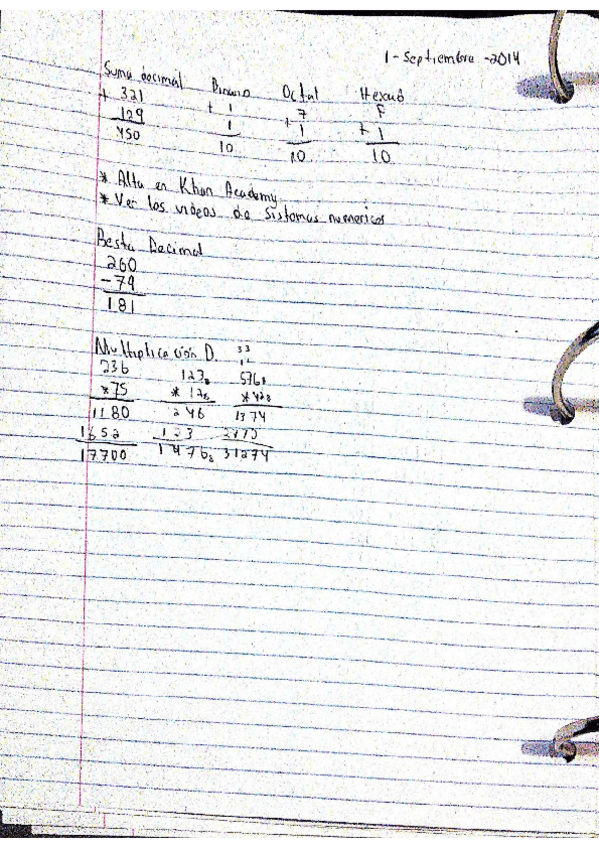 1-Septiembre-2014
Suma decimal Binario Octal Hexad
+ 321 + 1 7 F
129 1 + 1 + 1
450 10 10 10
* Alta en Khan Academy
* Ver los videos de sistemas numericos
Resta Decimal
260
- 79
181
Multiplicación D. 33
236 123₈ 576₈
* 75 * 12₈ * 42₈
1180 246 1374
1652 123
17700 1476₈ 31274